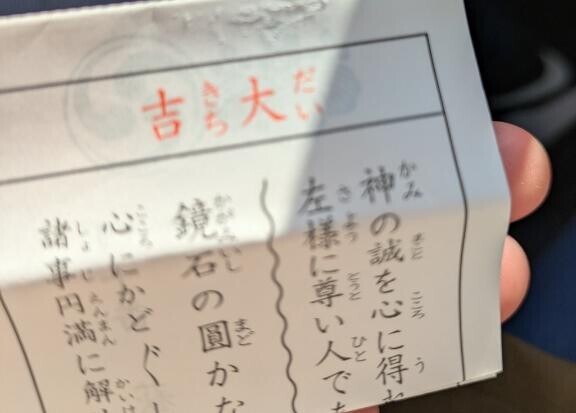 大吉
神の誠を心に得
左様に尊い人で
鏡石の圓かな
心にかど〴〵
諸事円満に解